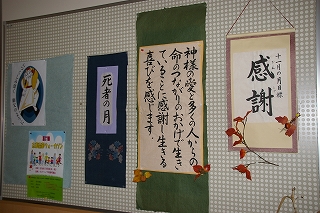 十一月の目標
感謝
神様の愛と多くの人からの
命のつながりのおかげで生き
ていることに感謝し生きる
喜びを感じます。
死者の月